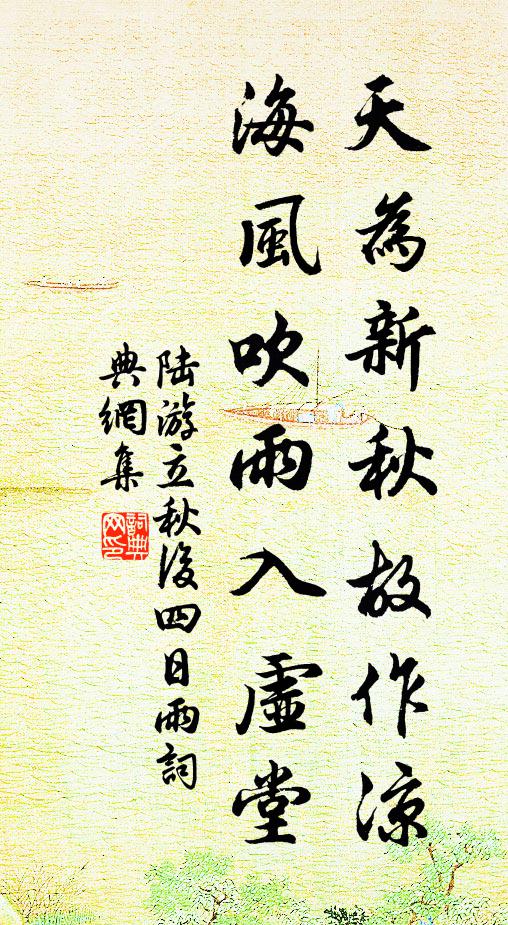 天為新秋故作涼
海風吹雨入虛堂
陸游立秋後四日雨詞
典網集
詞典
网印